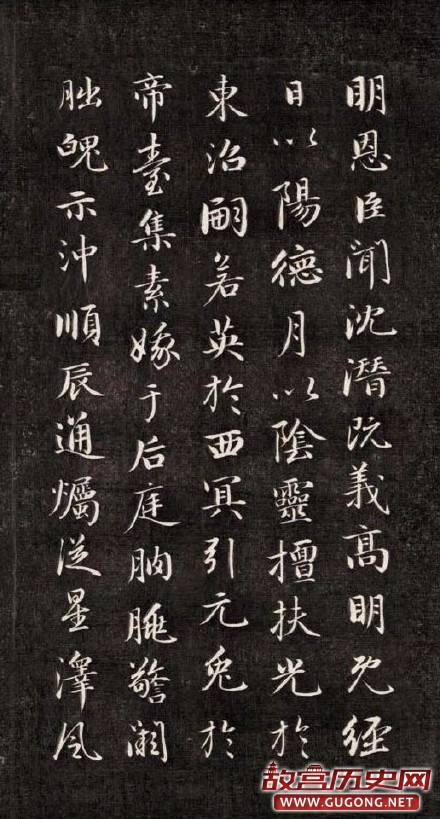 明恩臣聞沈潛既義髙明既經
日以陽德月以陰靈擅扶光於
東沼嗣若英於西冥引元兔於
帝臺集素娥于后庭朒朓警闕
朏魄示沖順辰通爥從星澤風
故宫历史网
WWW.GUGONG.NET